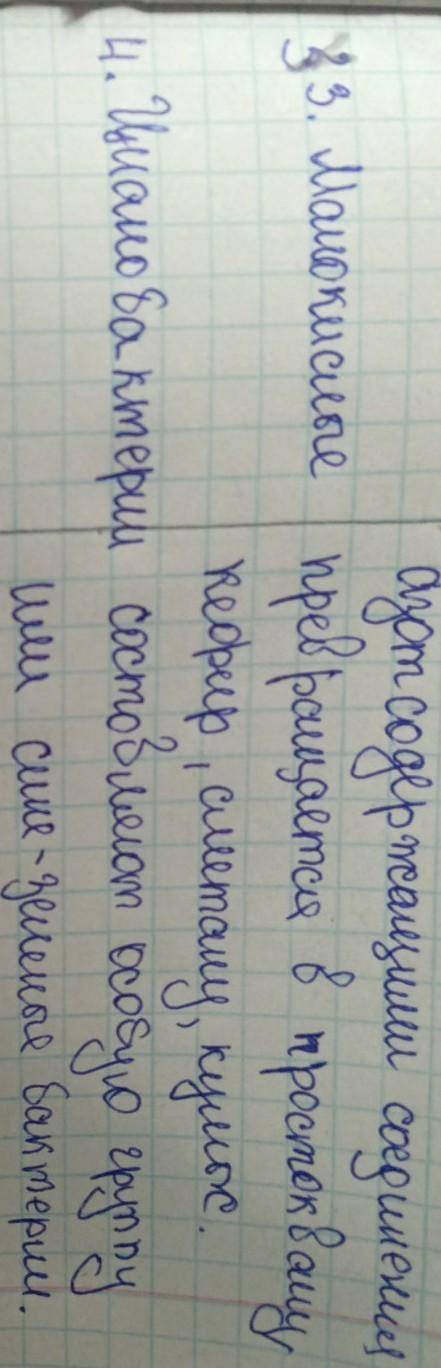 азот содержащими соединения
3. Молокислые превращается в простоквашу
кефир, сметану, кумыс.
4. Цианобактерии составляют особую группу
или сине-зеленые бактерии.